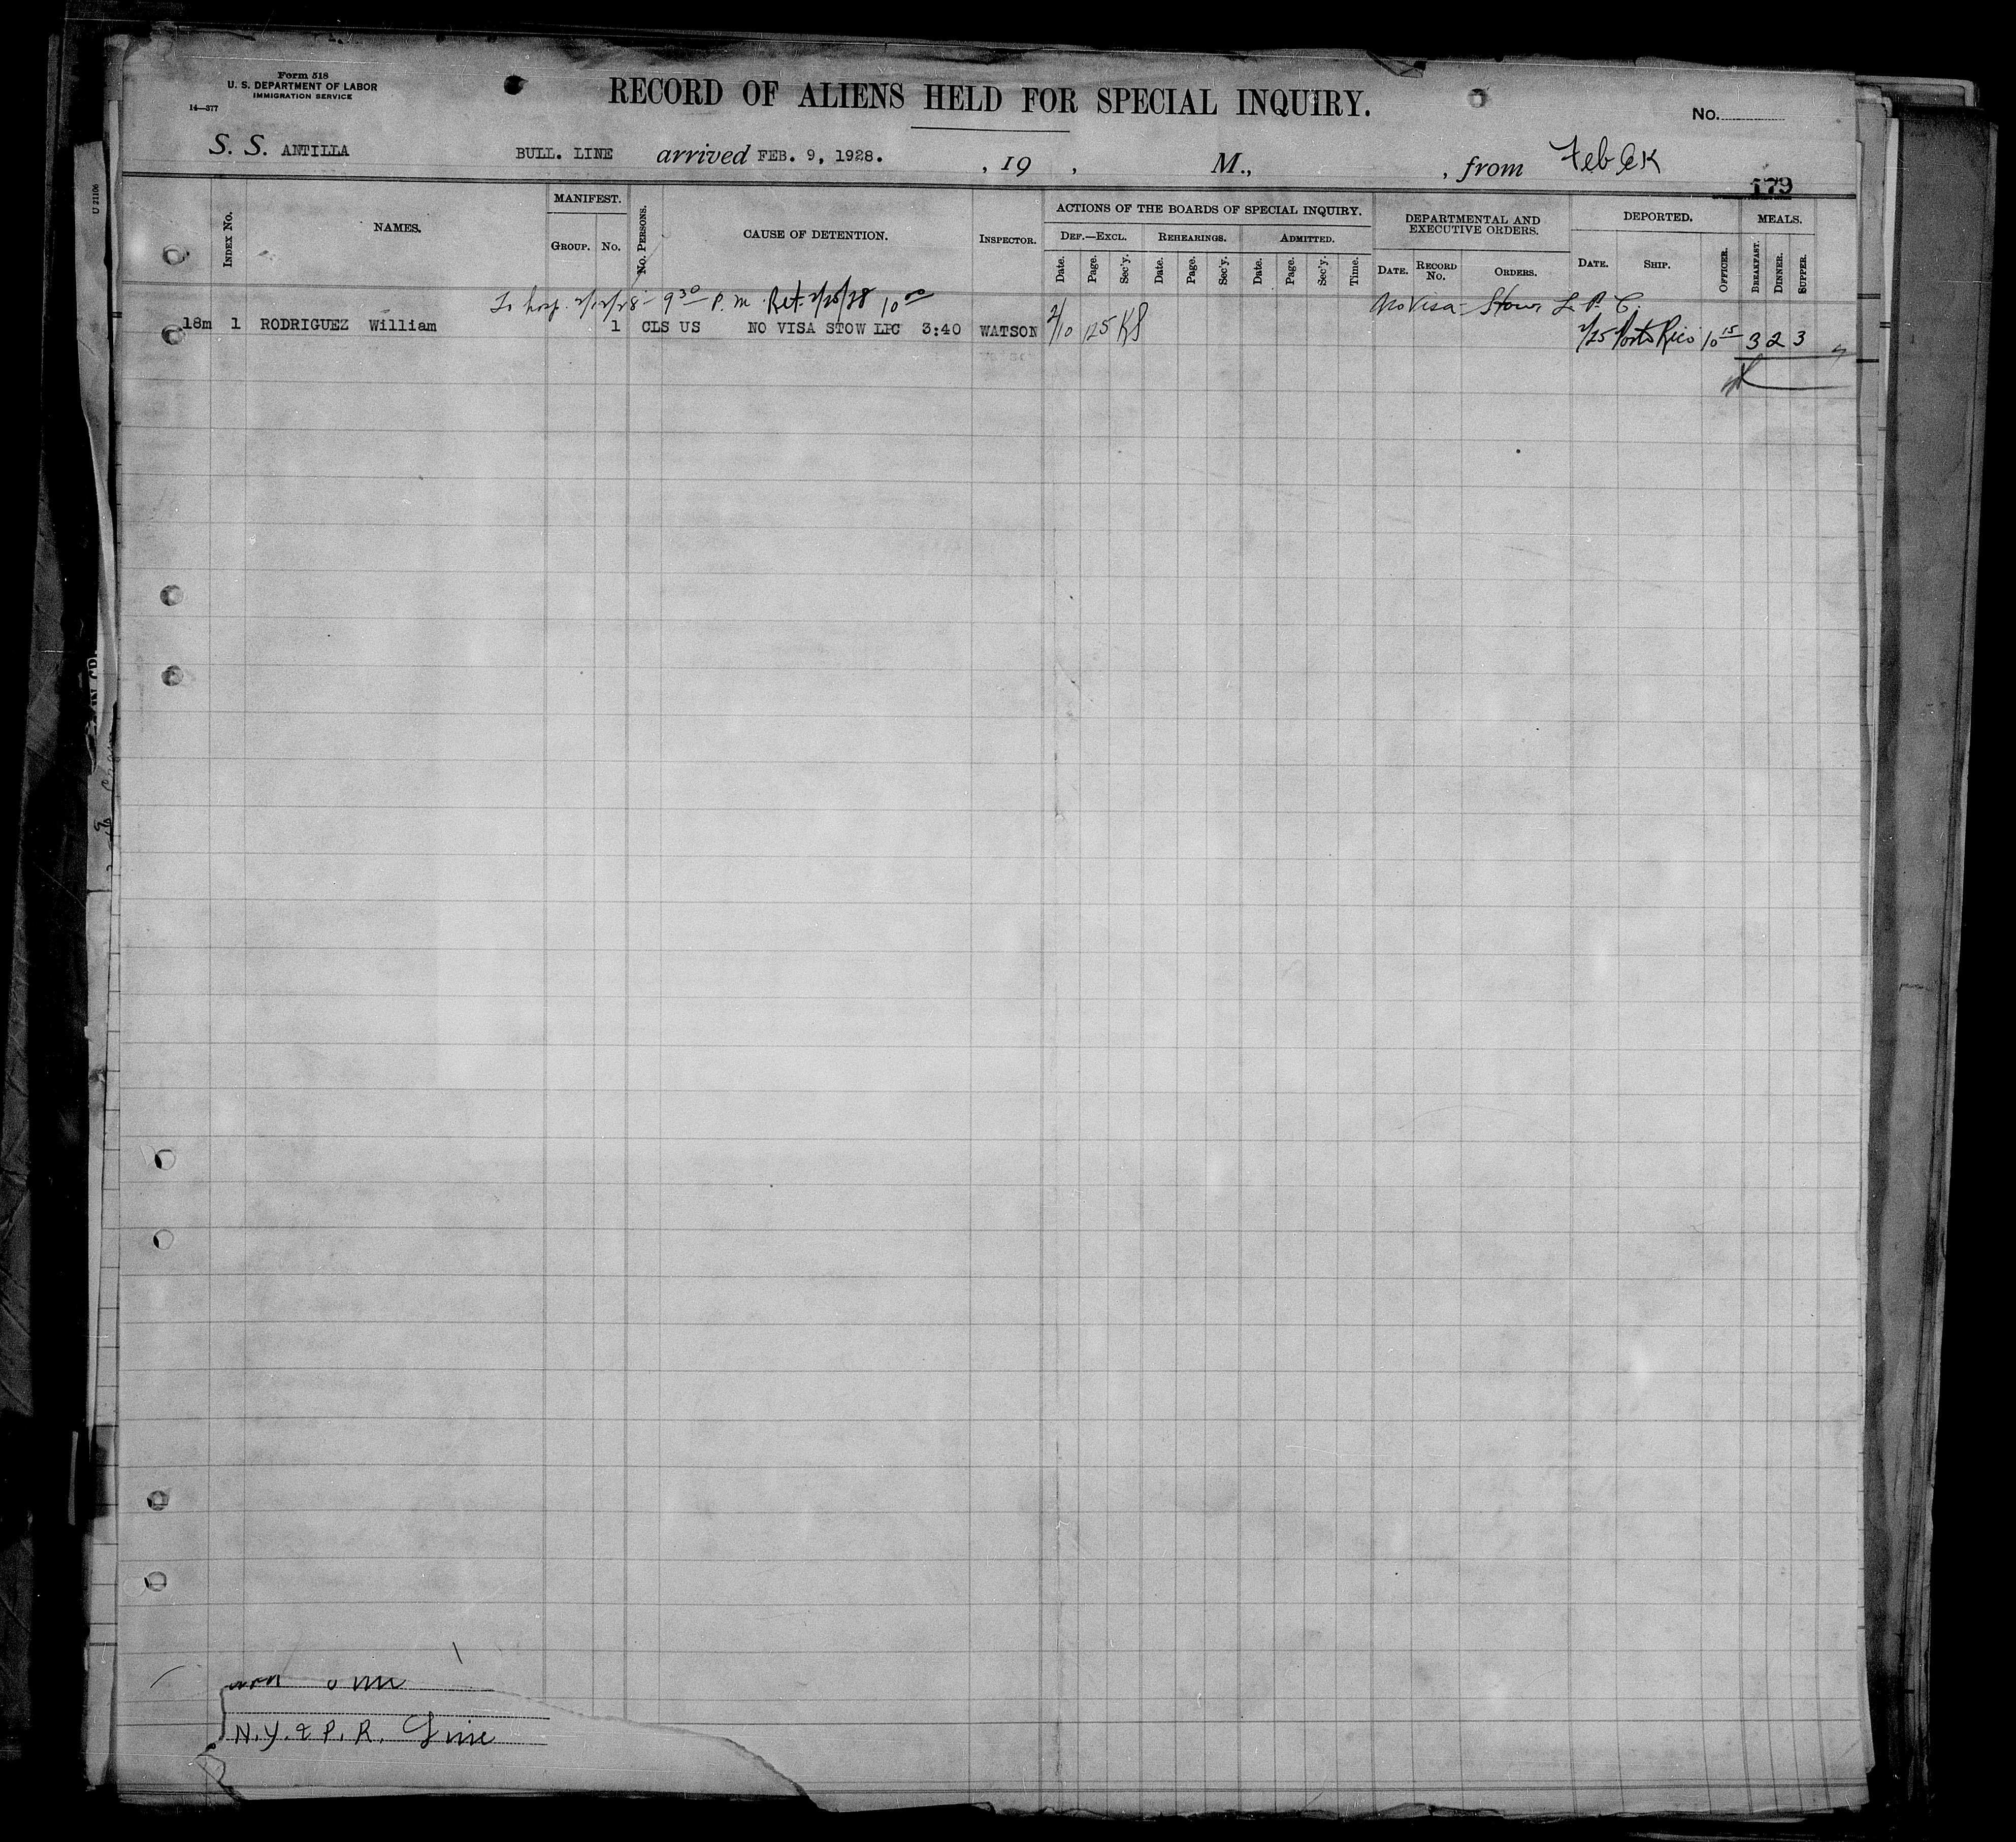 Form 518
U. S. DEPARTMENT OF LABOR
IMMIGRATION SERVICE
14—377
RECORD OF ALIENS HELD FOR SPECIAL INQUIRY.
No.
S. S. ANTILLA BULL. LINE arrived FEB. 9, 1928. , 19 , M., , from
179
U 21106
INDEX No. NAMES. MANIFEST. GROUP. No. No. PERSONS. CAUSE OF DETENTION. INSPECTOR.
ACTIONS OF THE BOARDS OF SPECIAL INQUIRY.
DEF.—EXCL. REHEARINGS. ADMITTED.
Date. Page. Sec'y. Date. Page. Sec'y. Date. Page. Sec'y. Time.
DEPARTMENTAL AND EXECUTIVE ORDERS.
DATE. RECORD No. ORDERS.
DEPORTED.
DATE. SHIP. OFFICER.
MEALS.
BREAKFAST. DINNER. SUPPER.
To hosp. 2/12/28 - 9 30 P. m. Ret. 2/25/28 10 00 No Visa - Stow. L. P. C.
18m 1 RODRIGUEZ William 1 CLS US NO VISA STOW LPC 3:40 WATSON 2/10 125 KS 2/25 Porto Rico 10 15 3 2 3
N. Y. & P. R. Line